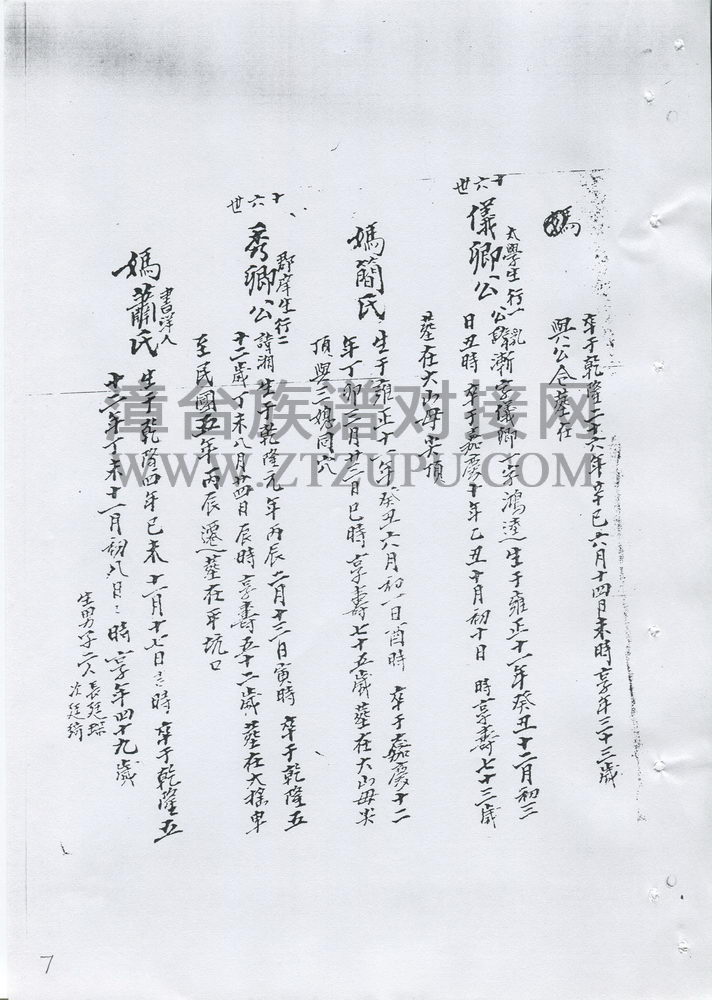 媽
卒于乾隆二十六年辛巳六月十四日未時享年三十三歲
與公合墓在
十六世
儀卿公
太學生行一
公諱漸字儀卿一字鴻逵生于雍正十一年癸丑十二月初三
日丑時 卒于嘉慶十年乙丑十月初十日 時享壽七十三歲
墓在大山母尖頂
媽簡氏
生于雍正十一年癸丑六月初一日酉時 卒于嘉慶十二
年丁卯三月廿三日巳時享壽七十五歲墓在大山母尖
頂與二媳同穴
十六世
秀卿公
郡庠生行二
諱湘生于乾隆元年丙辰二月十三日寅時 卒于乾隆五
十二歲丁未八月廿四日辰時享壽五十二歲墓在大
至民國五年丙辰遷墓在平坑口
媽蕭氏
書洋人
生于乾隆四年己未十二月十七日 時 卒于乾隆五
十二年丁未十一月初八日 時享年四十九歲
生男子二人
長廷琮
次廷
漳台族谱对接网
WWW.ZTZUPU.COM
7